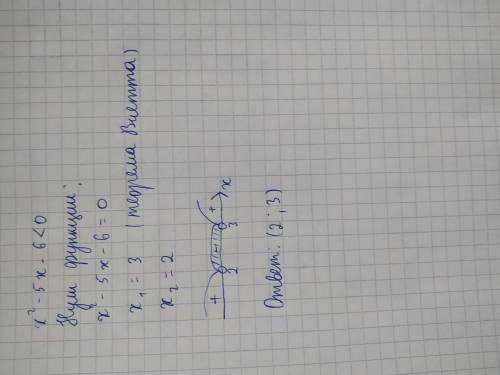 x² - 5x - 6 < 0
Нули функции:
x² - 5x - 6 = 0
x₁ = 3 (теорема Виетта)
x₂ = 2
+ - + x
2 3
Ответ: (2 ; 3)